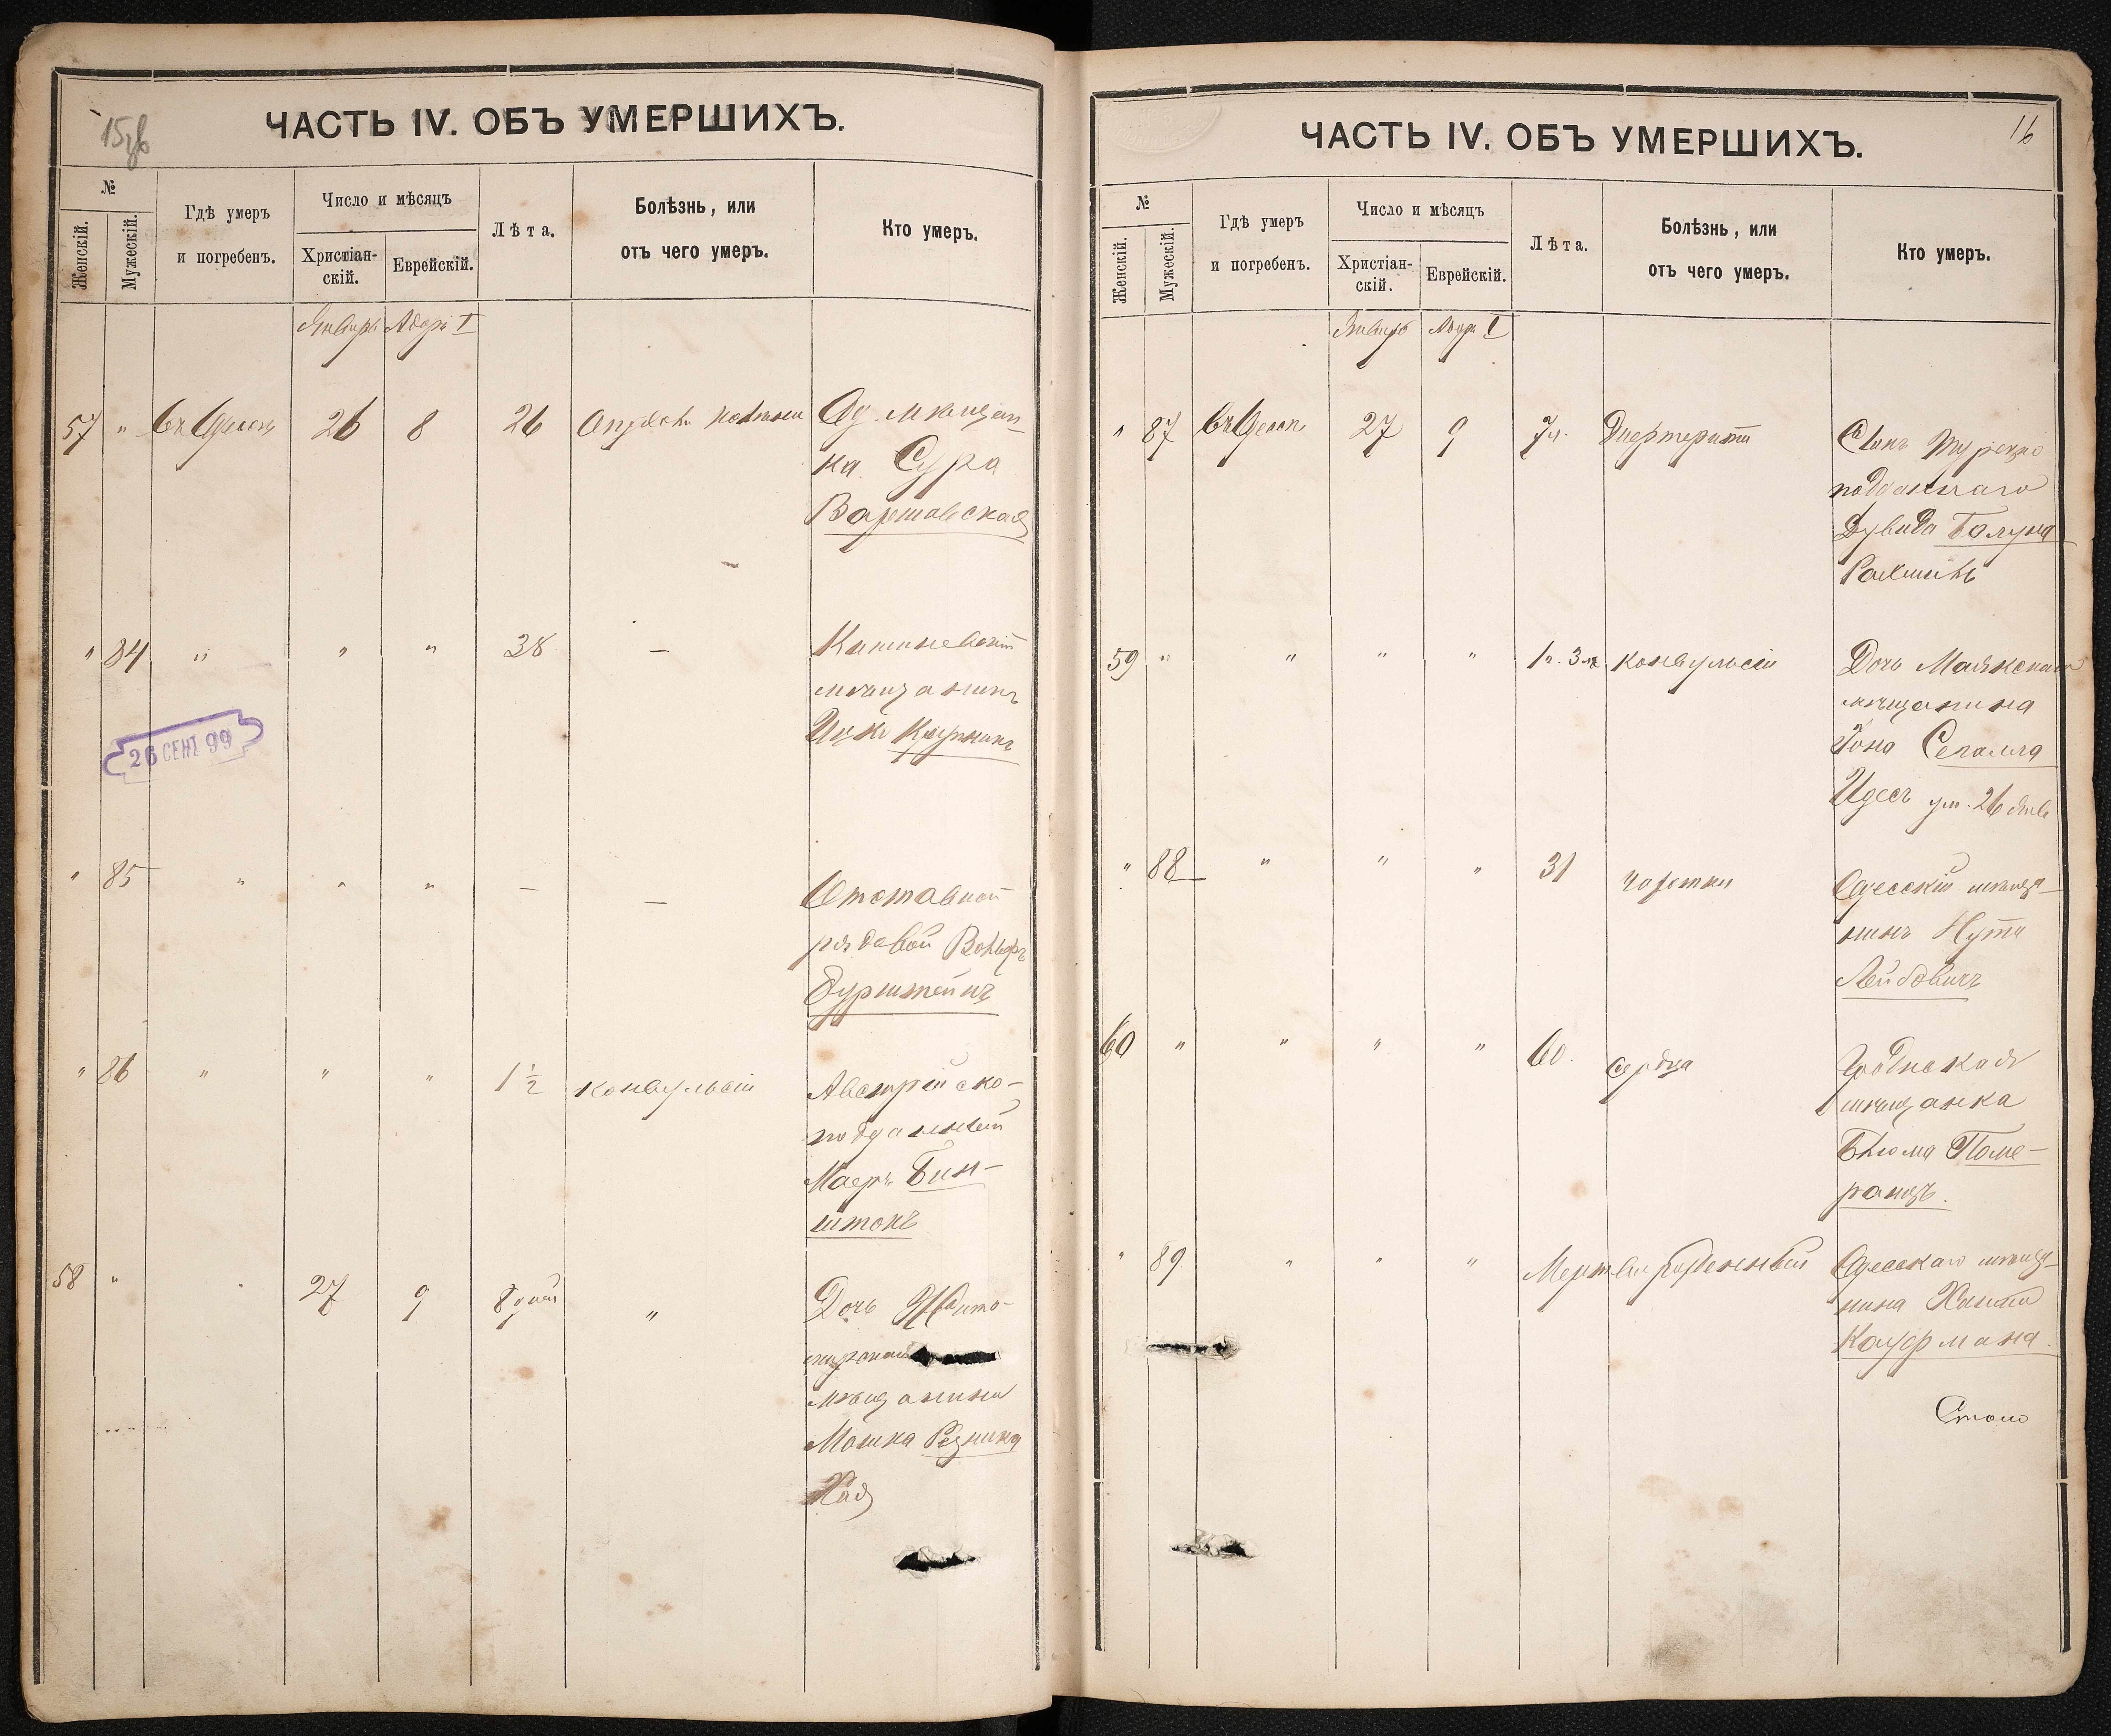 15
ЧАСТЬ IV. ОБЪ УМЕРШИХЪ.
№
Женскій.
Мужескій.
Гдѣ умеръ
и погребенъ.
Число и мѣсяцъ
Христіан-
скій.
Еврейскій.
Лѣта.
Болѣзнь, или
отъ чего умеръ.
Кто умеръ.
Январь Адаръ I
57 " въ Одессѣ 26 8 26 Од. мѣщан-
ка Сура
Варшавская
" 84 " " " 38 —
мѣщанинъ
Ицко
26 СЕНТ 99
" 85 " " " — — Отставной
рядовой Вольфъ
Бурштейнъ
" 86 " " " 1½ конвульсіи Австрійско-
подданный
Маеръ Бин-
штокъ
58 " " 27 9 8 дней " Дочь Жито-
мірскаго
мѣщанина
Мошка Резника
Хая
16
ЧАСТЬ IV. ОБЪ УМЕРШИХЪ.
№
Женскій.
Мужескій.
Гдѣ умеръ
и погребенъ.
Число и мѣсяцъ
Христіан-
скій.
Еврейскій.
Лѣта.
Болѣзнь, или
отъ чего умеръ.
Кто умеръ.
Январь Адаръ I
" 87 въ Одессѣ 27 9 7 л. Дифтеритъ Сынъ Турецко
подданнаго
Дувида
Рахминъ
59 " " " " 1 г. 3 м. конвульсіи Дочь Маякскаго
мѣщанина
Іона Сегалла
Идесъ ум. 26 Янв
" 88 " " " 31 чахотки Одесскій мѣща-
нинъ Нута
Лейбовичъ
60 " " " " 60. сердца Гродненская
мѣщанка
Блюма Поме-
ранцъ.
" 89 " " " Мертворожденный Одесскаго мѣща-
нина
Кауфмана.